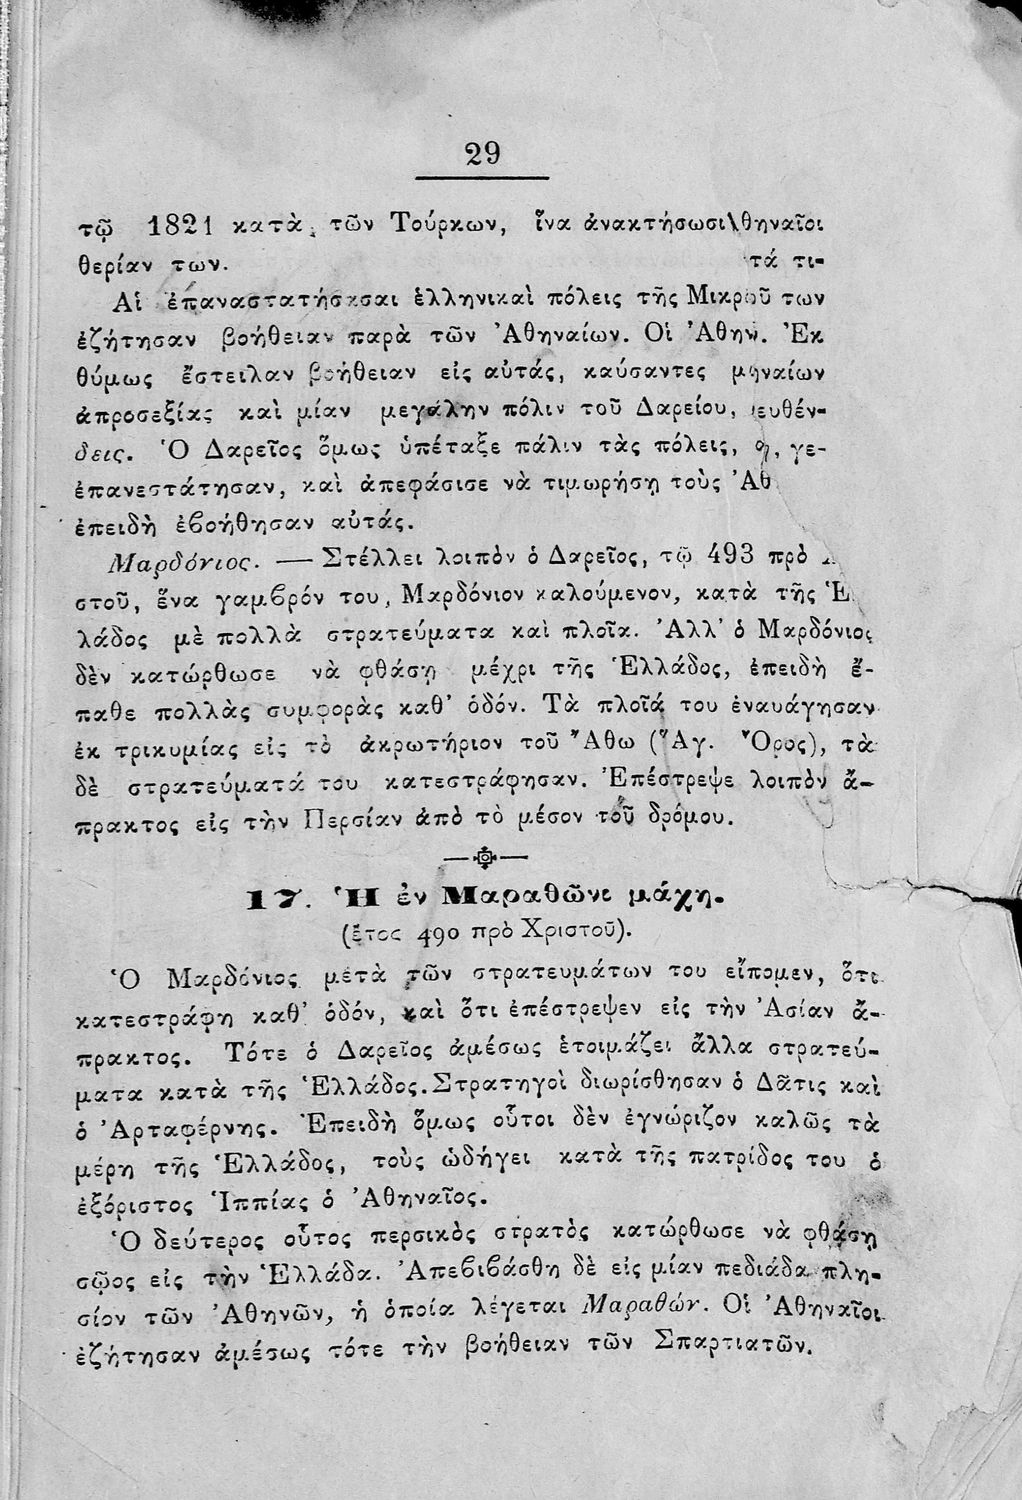 29
τῷ 1821 κατὰ τῶν Τούρκων, ἵνα ἀνακτήσωσι θηναῖοι
θερίαν των. τά τι-
Αἱ ἐπαναστατήσασαι ἑλληνικαὶ πόλεις τῆς Μικροῦ των
ἐζήτησαν βοήθειαν παρὰ τῶν Ἀθηναίων. Οἱ Ἀθην. Ἐκ
θύμως ἔστειλαν βοήθειαν εἰς αὐτάς, καύσαντες μηναίων
ἀπροσεξίας καὶ μίαν μεγάλην πόλιν τοῦ Δαρείου, ευθέν-
δεις. Ὁ Δαρεῖος ὅμως ὑπέταξε πάλιν τὰς πόλεις, γε-
ἐπανεστάτησαν, καὶ ἀπεφάσισε νὰ τιμωρήσῃ τοὺς Ἀθ
ἐπειδὴ ἐβοήθησαν αὐτάς.
Μαρδόνιος. — Στέλλει λοιπὸν ὁ Δαρεῖος, τῷ 493 πρὸ
στοῦ, ἕνα γαμβρόν του, Μαρδόνιον καλούμενον, κατὰ τῆς Ἑ
λάδος μὲ πολλὰ στρατεύματα καὶ πλοῖα. Ἀλλ' ὁ Μαρδόνιος
δὲν κατώρθωσε νὰ φθάσῃ μέχρι τῆς Ἑλλάδος, ἐπειδὴ ἔ-
παθε πολλὰς συμφορὰς καθ' ὁδόν. Τὰ πλοῖά του ἐναυάγησαν
ἐκ τρικυμίας εἰς τὸ ἀκρωτήριον τοῦ Ἄθω (Ἅγ. Ὄρος), τὰ
δὲ στρατεύματά του κατεστράφησαν. Ἐπέστρεψε λοιπὸν ἄ-
πρακτος εἰς τὴν Περσίαν ἀπὸ τὸ μέσον τοῦ δρόμου.
17. Ἡ ἐν Μαραθῶνι μάχη.
(ἔτος 490 πρὸ Χριστοῦ).
Ὁ Μαρδόνιος μετὰ τῶν στρατευμάτων του εἴπομεν, ὅτι
κατεστράφη καθ' ὁδόν, καὶ ὅτι ἐπέστρεψεν εἰς τὴν Ἀσίαν ἄ-
πρακτος. Τότε ὁ Δαρεῖος ἀμέσως ἑτοιμάζει ἄλλα στρατεύ-
ματα κατὰ τῆς Ἑλλάδος. Στρατηγοὶ διωρίσθησαν ὁ Δᾶτις καὶ
ὁ Ἀρταφέρνης. Ἐπειδὴ ὅμως οὗτοι δὲν ἐγνώριζον καλῶς τὰ
μέρη τῆς Ἑλλάδος, τοὺς ὡδήγει κατὰ τῆς πατρίδος του ὁ
ἐξόριστος Ἱππίας ὁ Ἀθηναῖος.
Ὁ δεύτερος οὗτος περσικὸς στρατὸς κατώρθωσε νὰ φθάσῃ
σῷος εἰς τὴν Ἑλλάδα. Ἀπεβιβάσθη δὲ εἰς μίαν πεδιάδα πλη-
σίον τῶν Ἀθηνῶν, ἡ ὁποία λέγεται Μαραθών. Οἱ Ἀθηναῖοι
ἐζήτησαν ἀμέσως τότε τὴν βοήθειαν τῶν Σπαρτιατῶν.